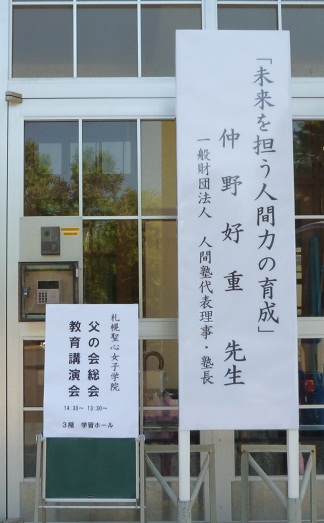 「未来を担う人間力の育成」
仲野好重 先生
一般財団法人 人間塾代表理事・塾長
札幌聖心女子学院
父の会総会 13:30〜
教育講演会 14:30〜
3階 学習ホール